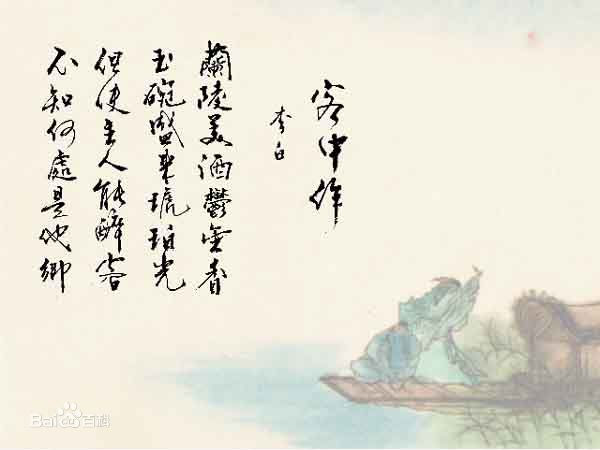 客中作
李白
蘭陵美酒鬱金香
玉碗盛來琥珀光
但使主人能醉客
不知何處是他鄉
Bai百科